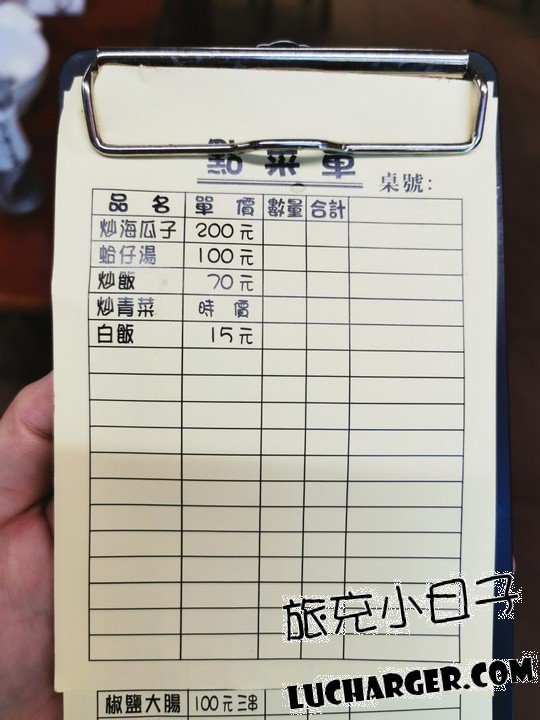 點菜單
桌號:
品名 單價 數量 合計
炒海瓜子 200元
蛤仔湯 100元
炒飯 70元
炒青菜 時價
白飯 15元
旅充小日子
LUCHARGER.COM
椒鹽大腸 100元三串